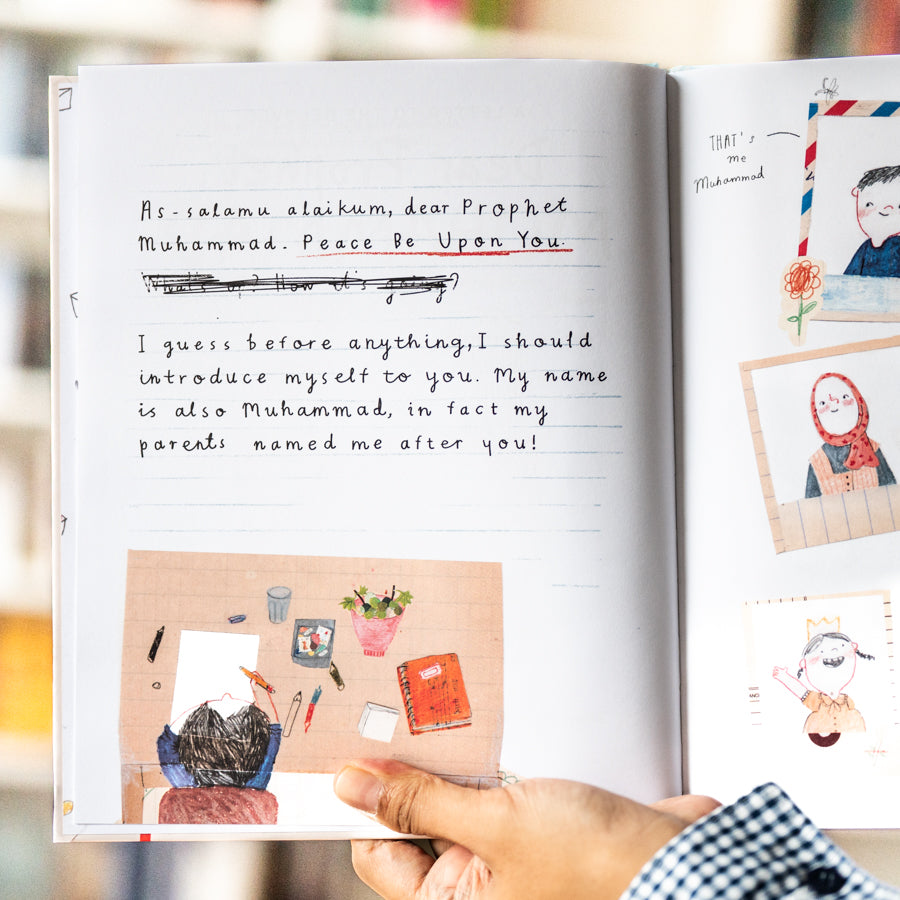 As-salamu alaikum, dear Prophet
Muhammad. Peace Be Upon You.
What's up? How it's going?
I guess before anything, I should
introduce myself to you. My name
is also Muhammad, in fact my
parents named me after you!
THAT's
me
Muhammad